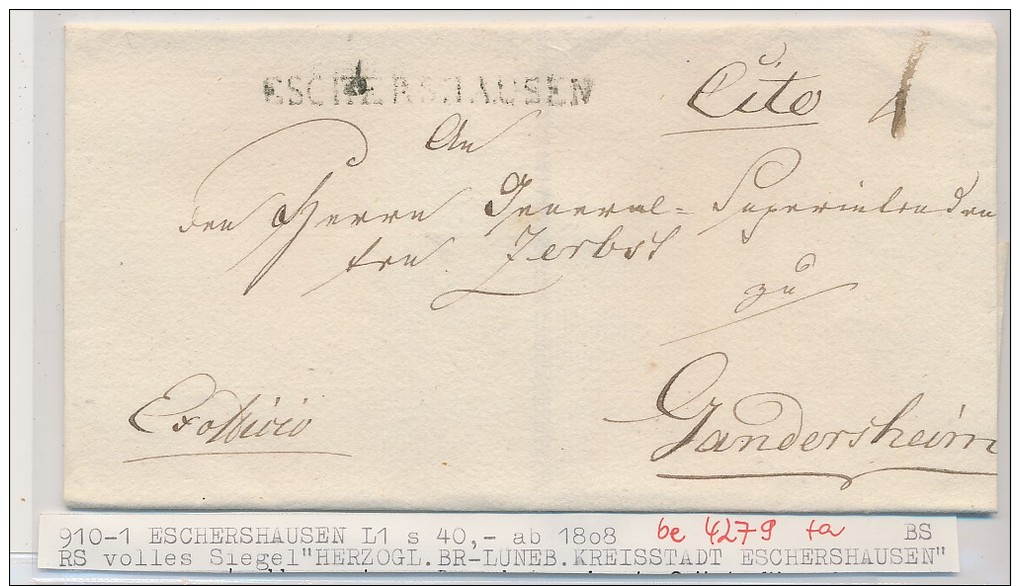 ESCHERSHAUSEN
Cito
An
den Herrn General= Superintenden
ten Zerbst
zu
Gandersheim
Exofficio
910-1 ESCHERSHAUSEN L1 s 40,- ab 18o8 be 4279 ta BS
RS volles Siegel"HERZOGL.BR-LUNEB.KREISSTADT ESCHERSHAUSEN"